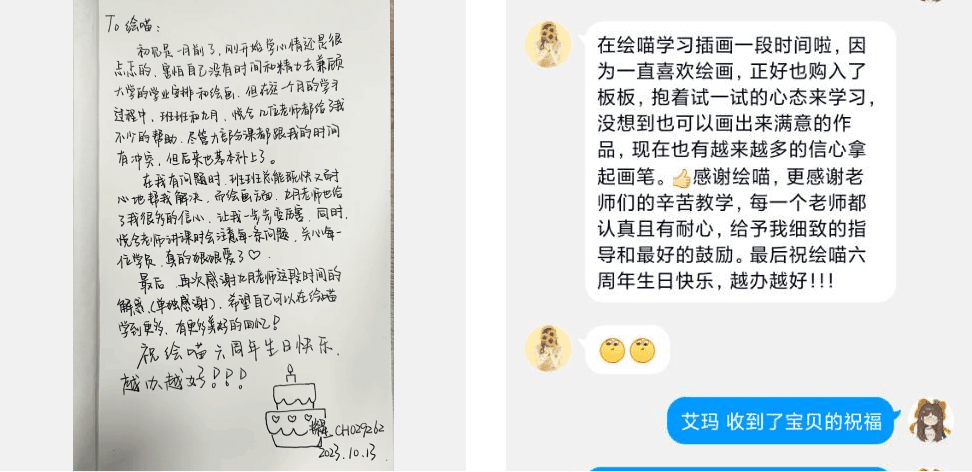 To 绘喵:
初见是一月前了,刚开始学心情还是很
忐忑的,害怕自己没有时间和精力去兼顾
大学的学业安排和绘画,但在这一个月的学习
过程中,班班和九月,悦会几位老师都给了我
不少的帮助,尽管大部分课都跟我的时间
有冲突,但后来也基本补上了。
在我有问题时,班班总能很快又耐
心地帮我解决,而绘画方面,九月老师也给
了我很多的信心,让我一步步变厉害,同时,
悦会老师讲课时会注意每一条问题,关心每一
位学员,真的狠狠爱了♡.
最后 再次感谢九月老师这段时间的
解惑,(单独感谢),希望自己可以在绘喵
学到更多,有更多美好的回忆!
祝绘喵六周年生日快乐,
越办越好!!!
CH029262
2023.10.13
在绘喵学习插画一段时间啦,因
为一直喜欢绘画,正好也购入了
板板,抱着试一试的心态来学习,
没想到也可以画出来满意的作
品,现在也有越来越多的信心拿
起画笔。👍感谢绘喵,更感谢老
师们的辛苦教学,每一个老师都
认真且有耐心,给予我细致的指
导和最好的鼓励。最后祝绘喵六
周年生日快乐,越办越好!!!
艾玛 收到了宝贝的祝福